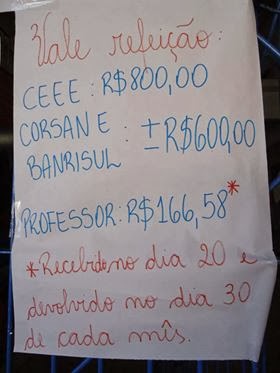 Vale refeição:
CEEE: R$800,00
CORSAN E
BANRISUL : ±R$600,00
PROFESSOR: R$166,58*
*Recebido no dia 20 e
devolvido no dia 30
de cada mês.